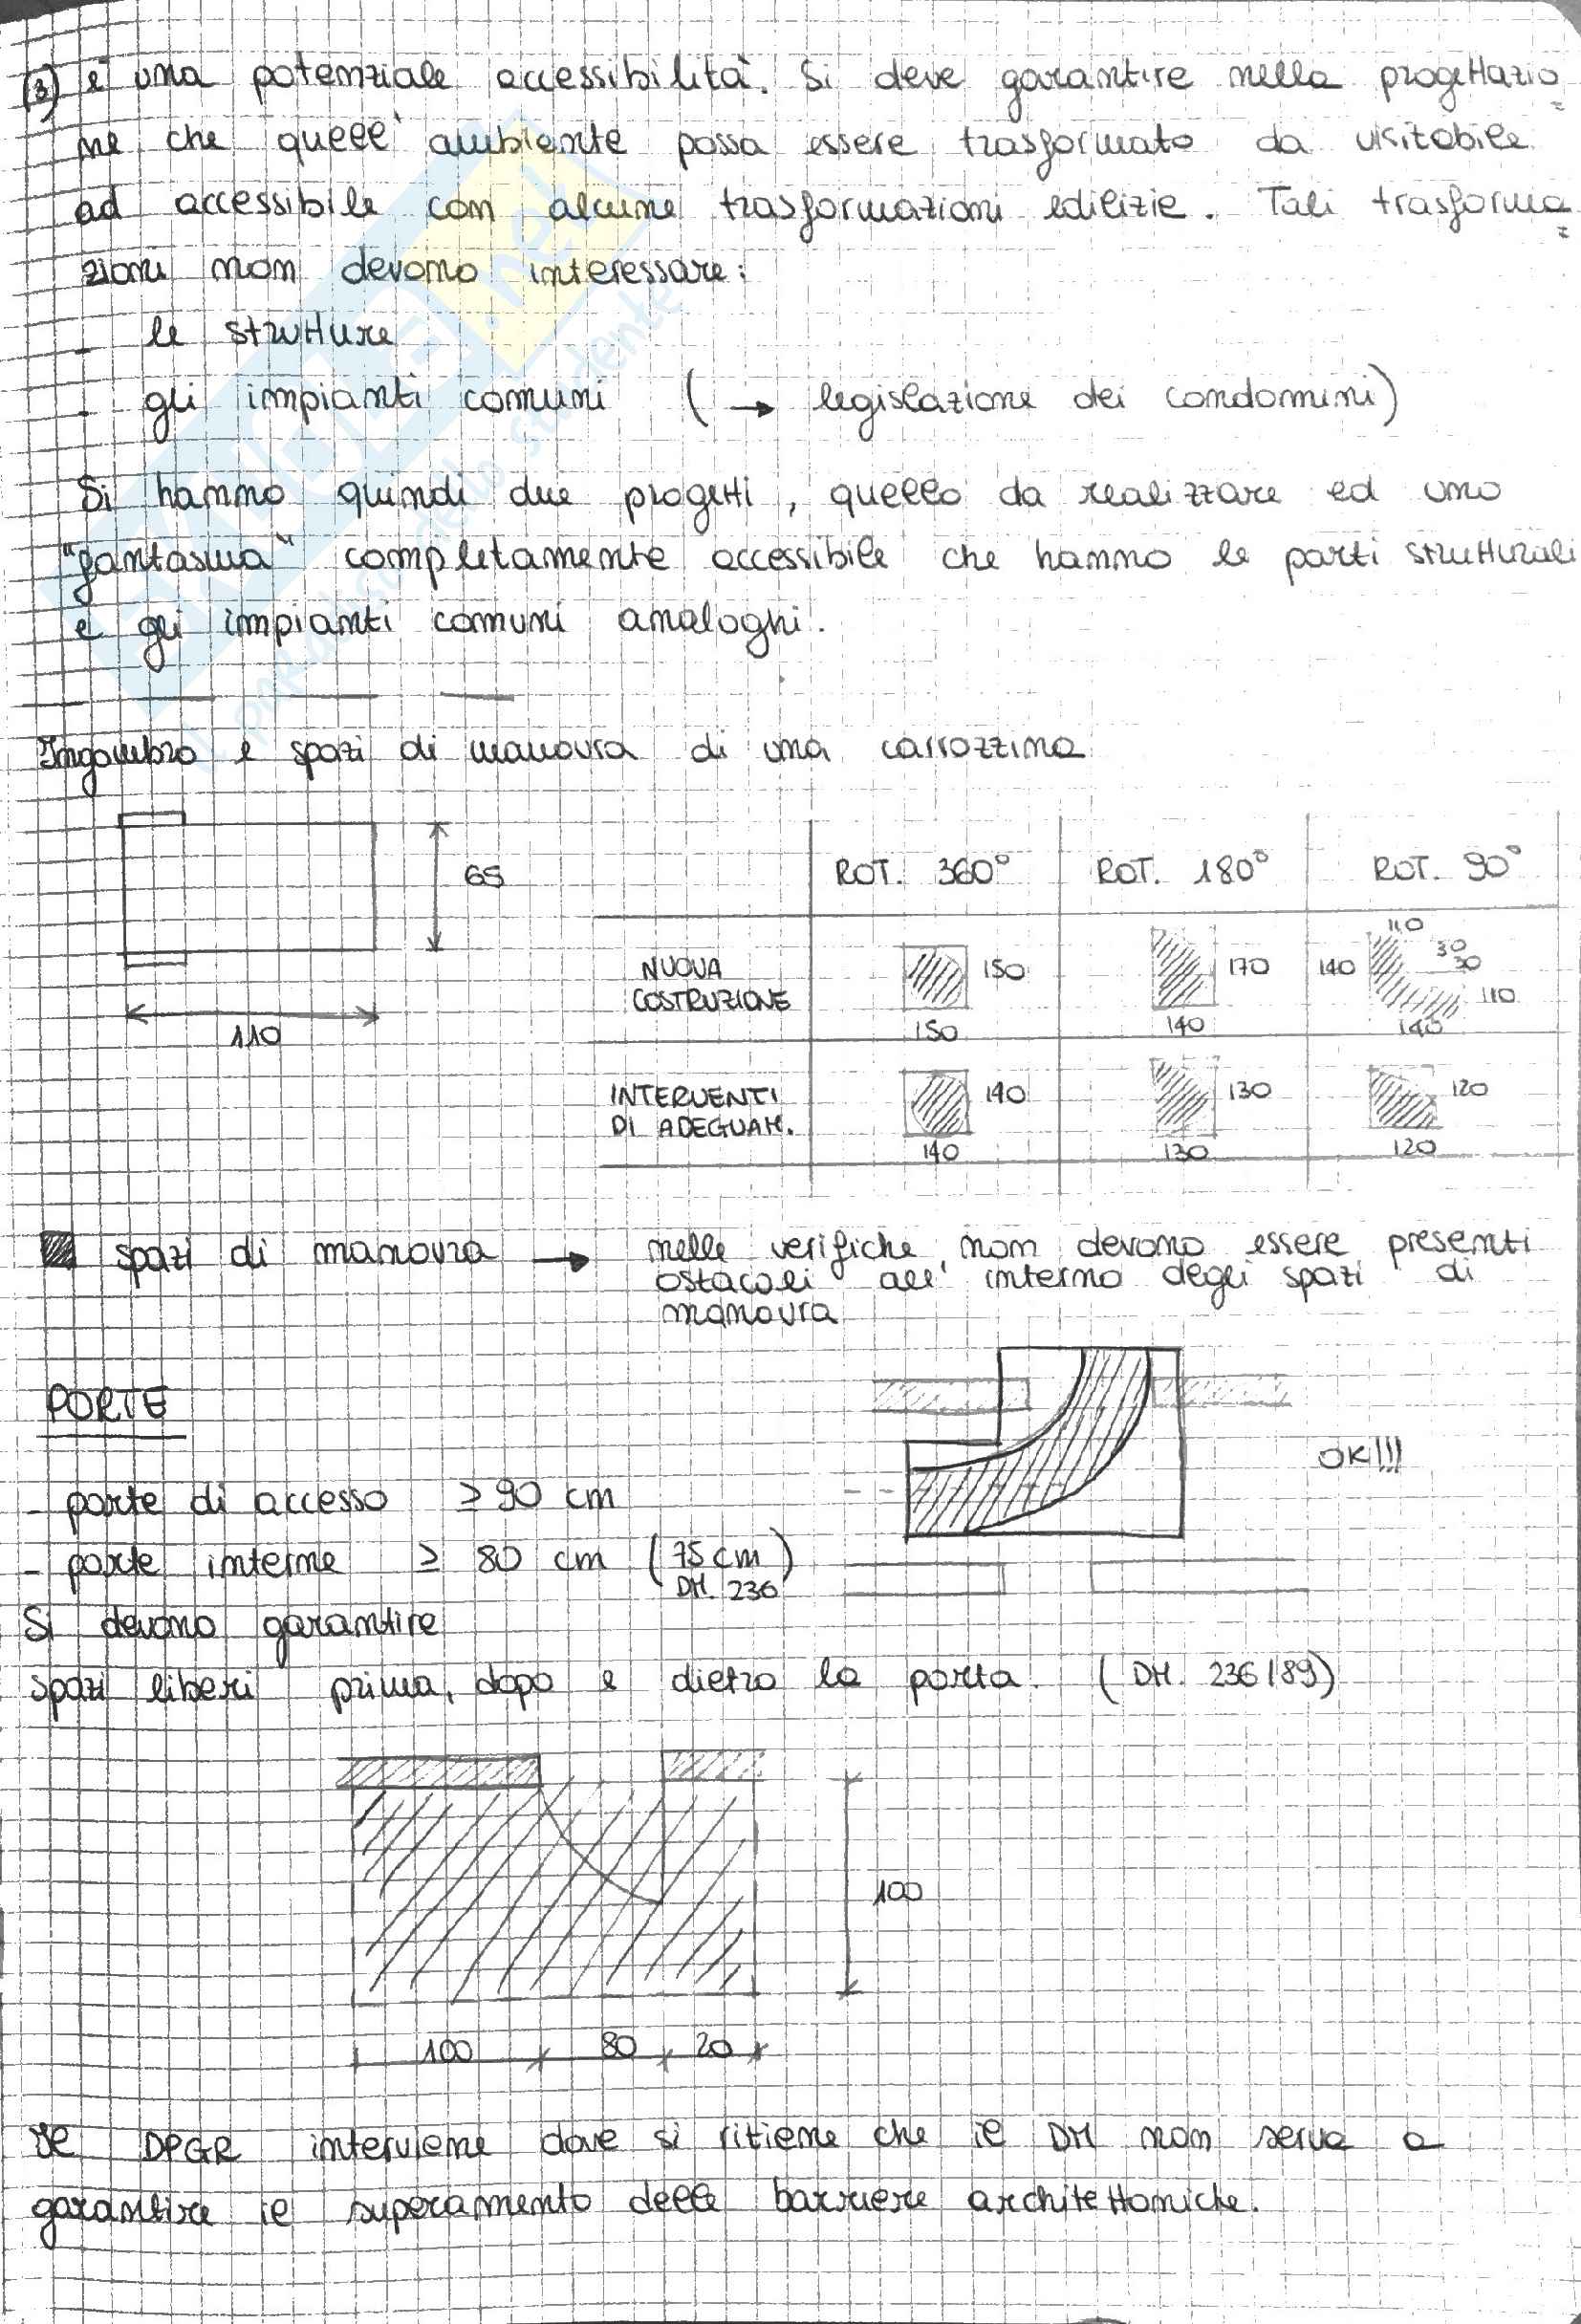 (3) è una potenziale accessibilità. Si deve garantire nella progettazio
ne che quell' ambiente possa essere trasformato da visitabile
ad accessibile con alcune trasformazioni edilizie. Tali trasforma
zioni non devono interessare:
- le strutture
- gli impianti comuni (→ legislazione dei condomini)
Si hanno quindi due progetti, quello da realizzare ed uno
"fantasma" completamente accessibile che hanno le parti strutturali
e gli impianti comuni analoghi.
Ingombro e spazi di manovra di una carrozzina
65
110
ROT. 360° ROT. 180° ROT. 90°
NUOVA COSTRUZIONE
150 150
170 140
110 140 30 30 110 140
INTERVENTI DI ADEGUAM.
140 140
130 130
120 120
spazi di manovra → nelle verifiche non devono essere presenti
ostacoli all' interno degli spazi di
manovra
PORTE
OK!!!
- porte di accesso ≥ 90 cm
- porte interne ≥ 80 cm (75 cm
DM. 236)
Si devono garantire
spazi liberi prima, dopo e dietro la porta. (DM. 236/89)
100
100 80 20
Il DPGR interviene dove si ritiene che il DM non serva a
garantire il superamento delle barriere architettoniche.